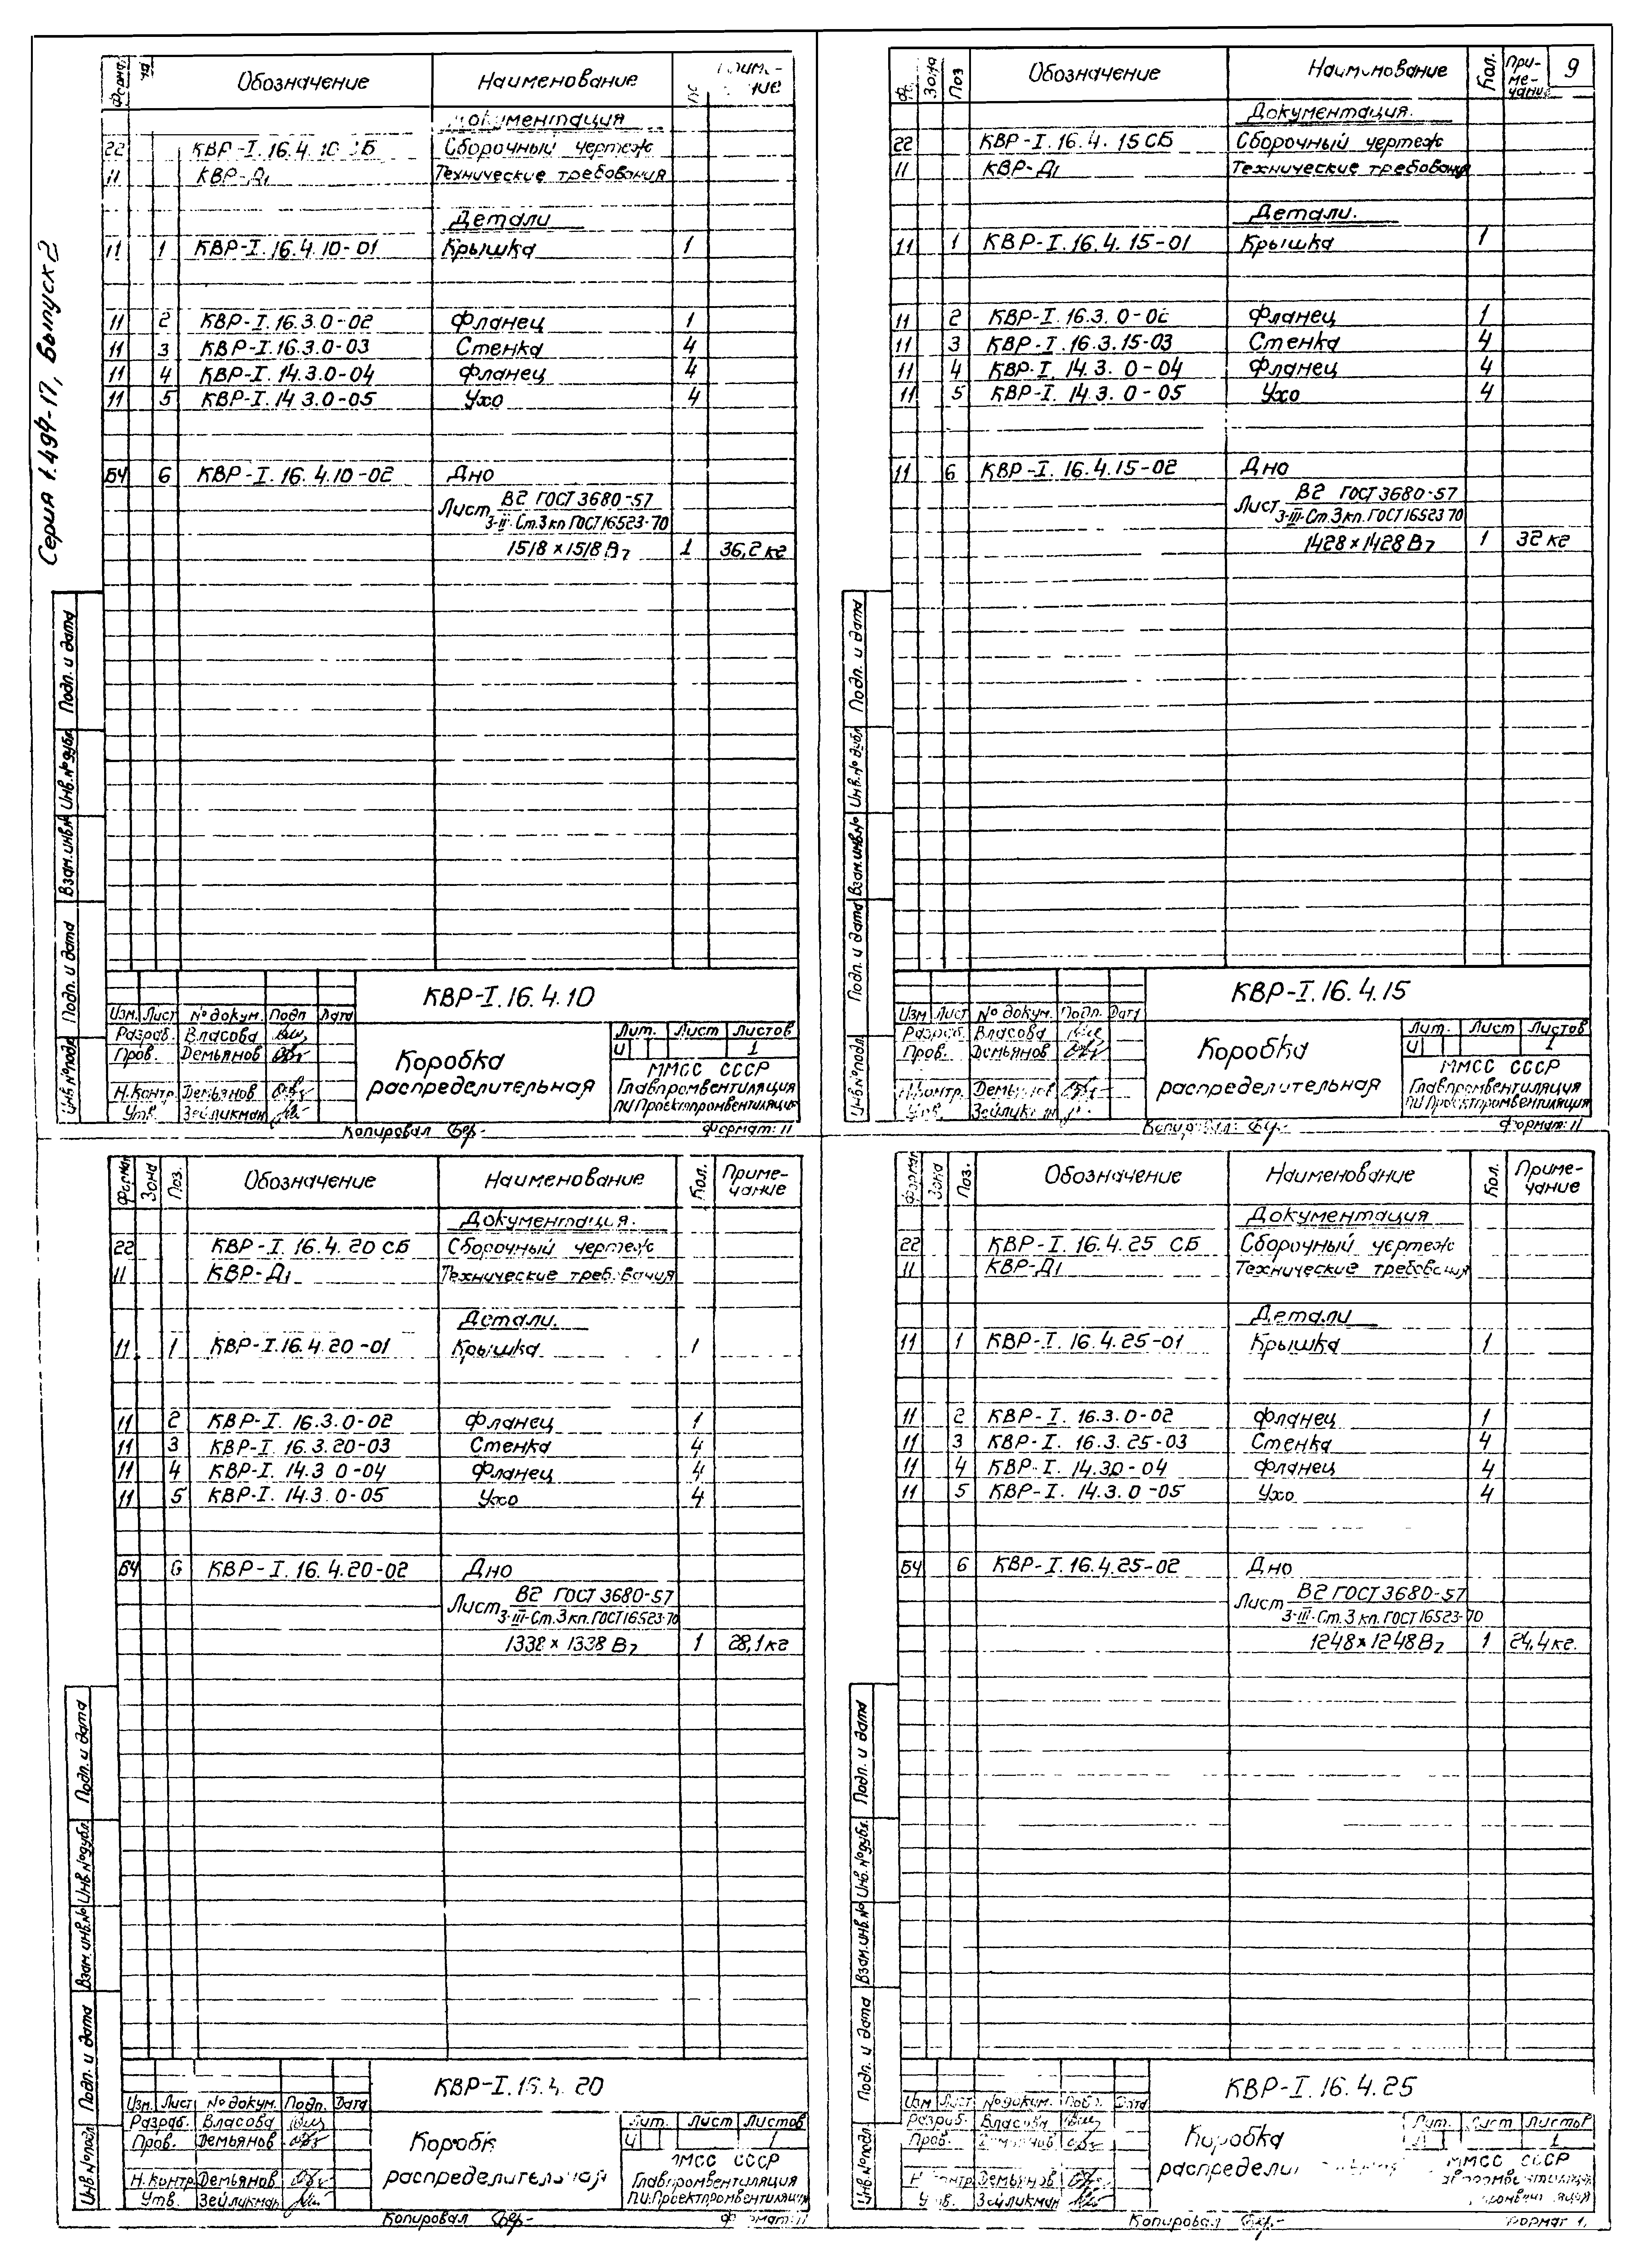 Серия 1.494-17, Выпуск 2
Обозначение Наименование
Документация
22 КВР-I.16.4.10 СБ Сборочный чертеж
11 КВР-Д1 Технические требования
Детали
11 1 КВР-I.16.4.10-01 Крышка 1
11 2 КВР-I.16.3.0-02 Фланец 1
11 3 КВР-I.16.3.0-03 Стенка 4
11 4 КВР-I.14.3.0-04 Фланец 4
11 5 КВР-I.14 3.0-05 Ухо 4
БЧ 6 КВР-I.16.4.10-02 Дно
В2 ГОСТ 3680-57
Лист
3-II-Ст.3кп ГОСТ16523-70
1518×1518 В7 1 36,2 кг
Подп. и дата
Инв.№дубл
Взам.инв.№
Подп. и дата
Инв.№подл
КВР-I.16.4.10
Изм. Лист №докум. Подп Дата
Разраб. Власова
Пров. Демьянов
Н.контр. Демьянов
Утв. Зейликман
Коробка
распределительная
Лит. Лист Листов
И 1
ММСС СССР
Главпромвентиляция
ПИ Проектпромвентиляция
Копировал Формат: 11
Зона Поз Обозначение Наименование Кол. При-
ме-
чание
9
Документация.
22 КВР-I.16.4.15 СБ Сборочный чертеж
11 КВР-Д1 Технические требования
Детали.
11 1 КВР-I.16.4.15-01 Крышка 1
11 2 КВР-I.16.3.0-02 Фланец 1
11 3 КВР-I.16.3.15-03 Стенка 4
11 4 КВР-I 14.3.0-04 Фланец 4
11 5 КВР-I.14.3.0-05 Ухо 4
11 6 КВР-I.16.4.15-02 Дно
В2 ГОСТ 3680-57
Лист
3-III-Ст.3кп.ГОСТ16523 70
1428×1428 В7 1 32 кг
Подп. и дата
Инв.№дубл
Взам.инв.№
Подп. и дата
Инв.№подл
КВР-I.16.4.15
Изм Лист №докум. Подп. Дата
Разраб. Власова
Пров. Демьянов
Н.контр. Демьянов
Утв. Зейликман
Коробка
распределительная
Лит. Лист Листов
И 1
ММСС СССР
Главпромвентиляция
ПИ Проектпромвентиляция
Копировал Формат: 11
Формат Зона Поз. Обозначение Наименование Кол. Приме-
чание
Документация.
22 КВР-I.16.4.20 СБ Сборочный чертеж
11 КВР-Д1 Технические требования
Детали.
11 1 КВР-I.16.4.20-01 Крышка 1
11 2 КВР-I.16.3.0-02 Фланец 1
11 3 КВР-I.16.3.20-03 Стенка 4
11 4 КВР-I.14.3 0-04 Фланец 4
11 5 КВР-I.14.3.0-05 Ухо 4
БЧ 6 КВР-I.16.4.20-02 Дно
В2 ГОСТ 3680-57
Лист
3-III-Ст.3кп.ГОСТ16523-70
1338×1338 В7 1 28,1кг
Подп. и дата
Инв.№дубл
Взам.инв.№
Подп. и дата
Инв.№подл
КВР-I.16.4.20
Изм. Лист №докум. Подп. Дата
Разраб. Власова
Пров. Демьянов
Н.контр Демьянов
Утв. Зейликман
Коробк
распределительная
Лит. Лист Листов
И 1
ММСС СССР
Главпромвентиляция
ПИ.Проектпромвентиляция
Копировал Формат: 11
Формат Зона Поз. Обозначение Наименование Кол. Приме-
чание
Документация
22 КВР-I.16.4.25 СБ Сборочный чертеж
11 КВР-Д1 Технические требования
Детали
11 1 КВР-I.16.4.25-01 Крышка 1
11 2 КВР-I.16.3.0-02 Фланец 1
11 3 КВР-I.16.3.25-03 Стенка 4
11 4 КВР-I.14.30-04 Фланец 4
11 5 КВР-I.14.3.0-05 Ухо 4
БЧ 6 КВР-I.16.4.25-02 Дно
В2 ГОСТ 3680-57
Лист
3-III-Ст.3кп.ГОСТ16523-70
1248×1248 В7 1 24,4кг.
Подп. и дата
Инв.№дубл.
Взам.инв.№
Подп. и дата
Инв.№подл
КВР-I.16.4.25
Изм Лист №докум. Подп. Дата
Разраб. Власова
Пров. Демьянов
Н.контр Демьянов
Утв. Зейликман
Коробка
Лит. Лист Листов
1
ММСС СССР
Копировал Формат 1